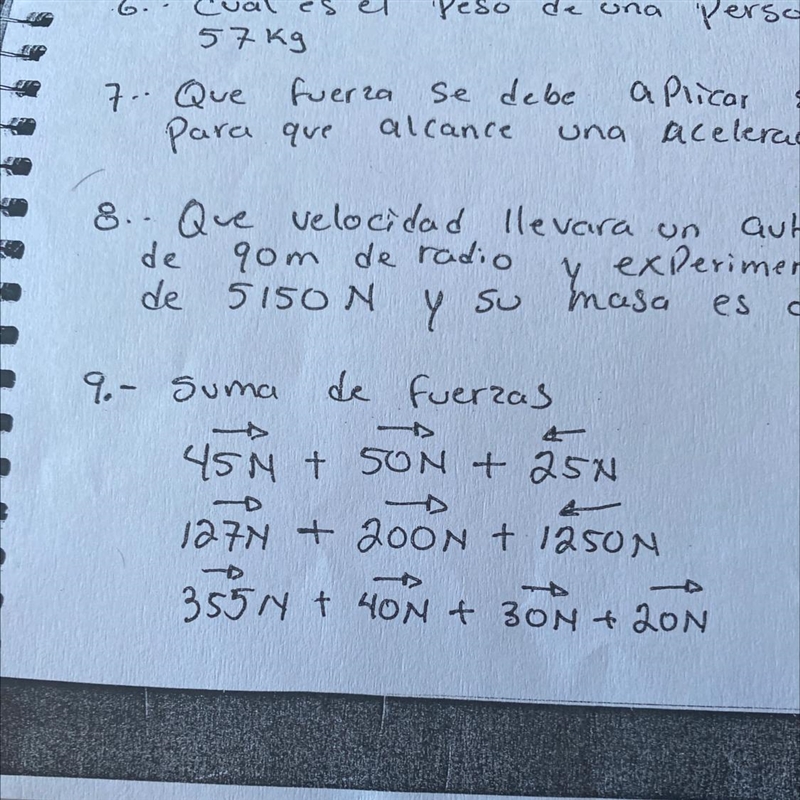 6.. Cual es el Peso de una Perso
57 Kg
7.. Que fuerza se debe aPlicar
Para que alcance una acelera
8.. Que velocidad llevara un aut
de 90m de radio y exPerimen
de 5150 N y su masa es d
9.- Suma de fuerzas
45N + 50N + 25N
127N + 200N + 1250N
355N + 40N + 30N + 20N